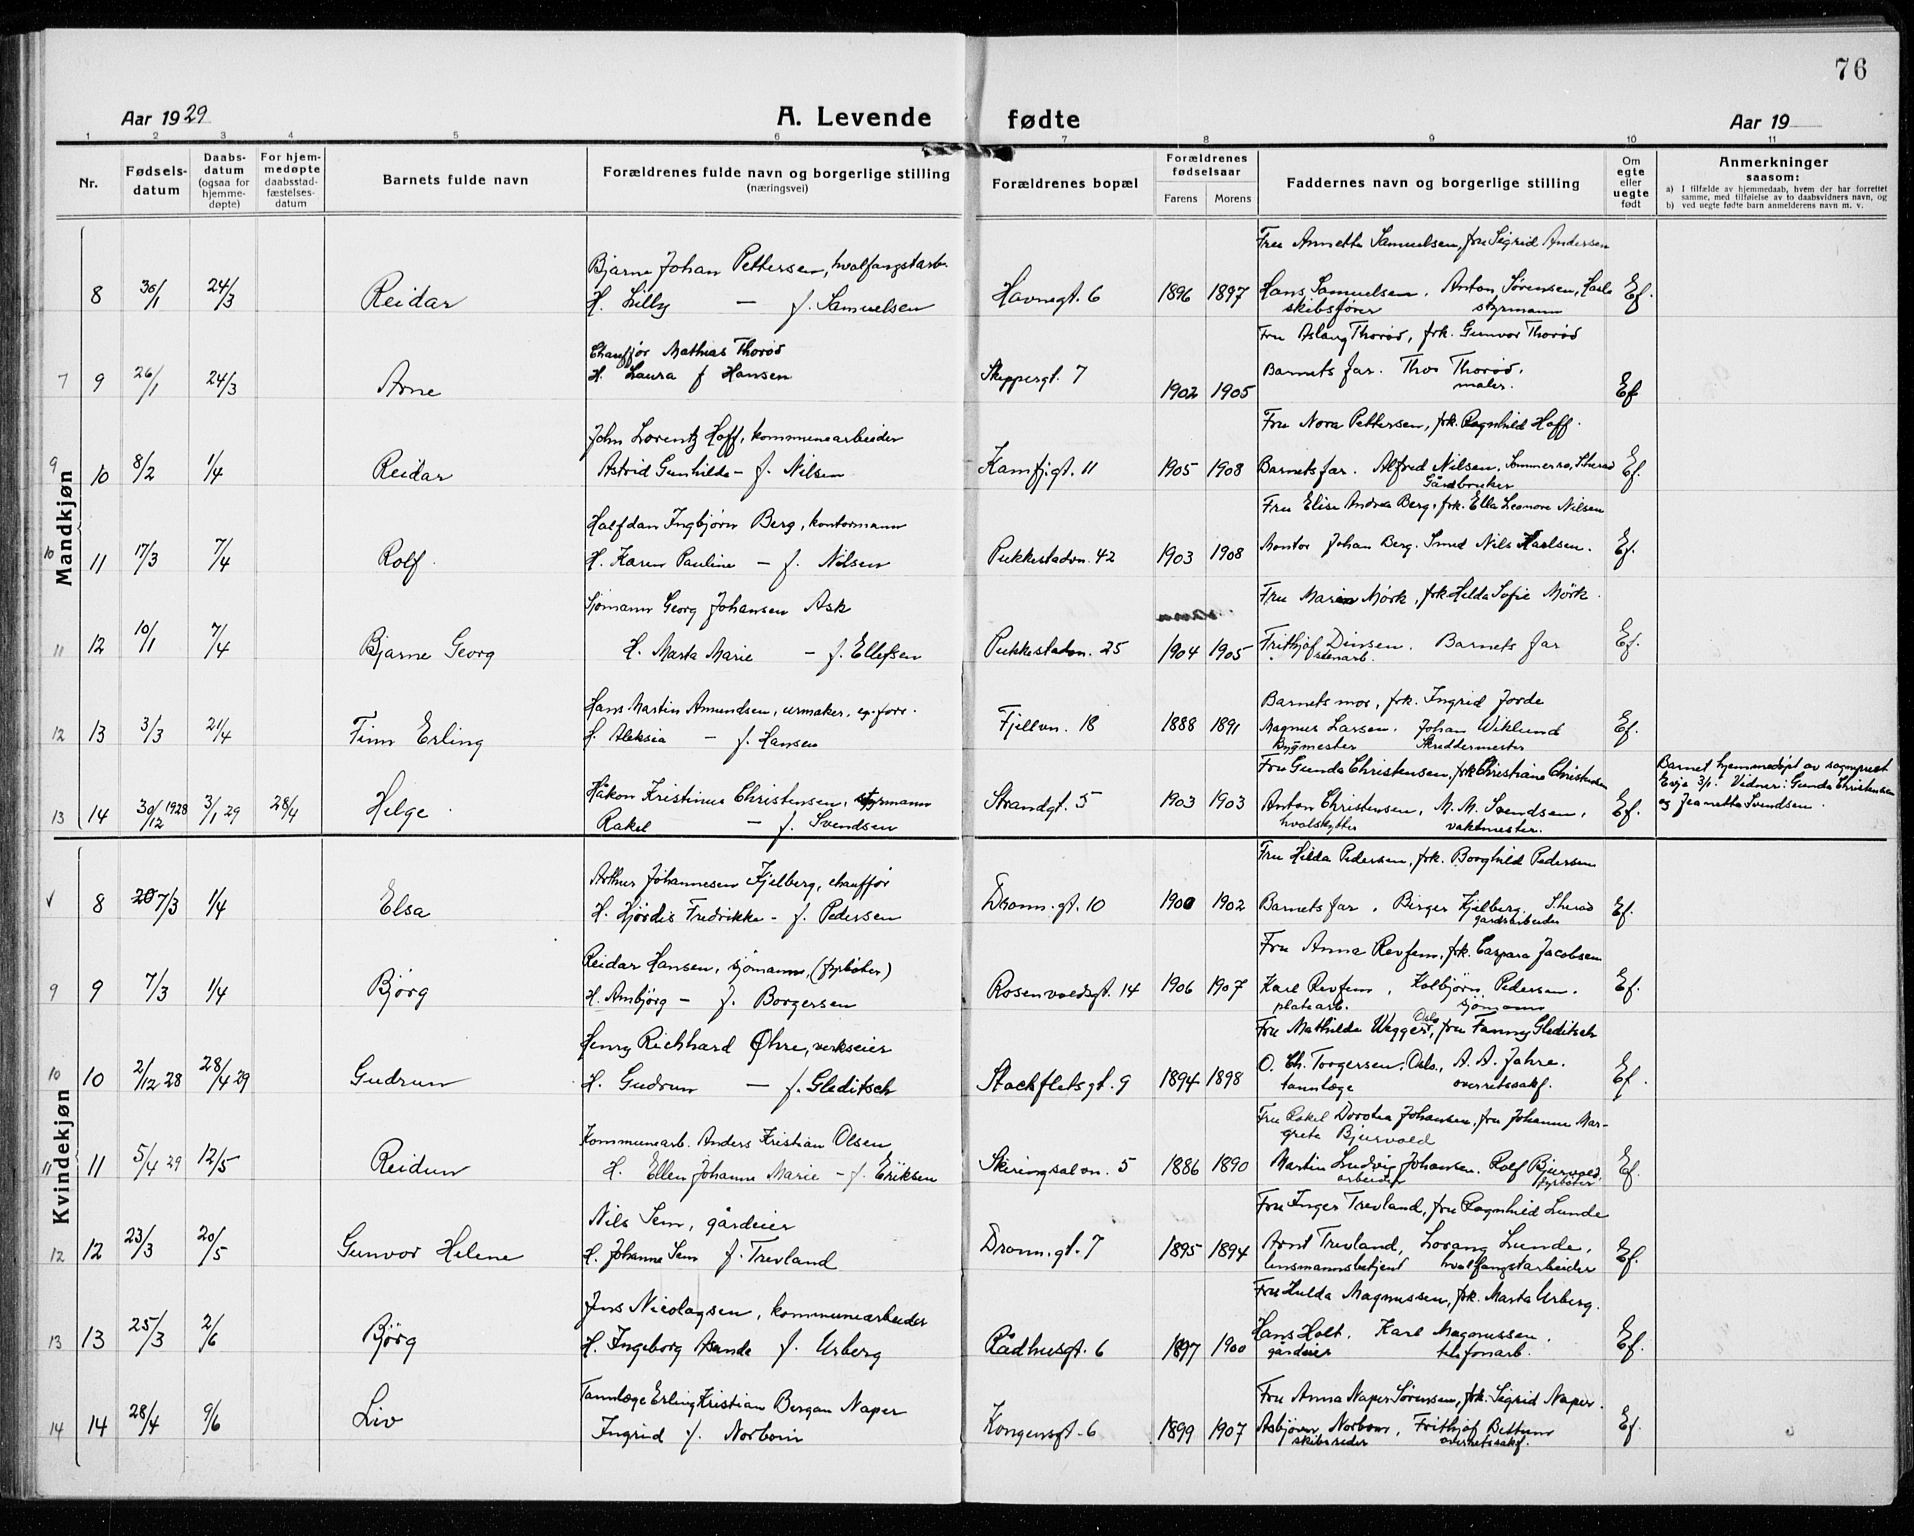 76
Aar 1929 A. Levende fødte Aar 19
1 2 3 4 5 6 7 8 9 10 11
Nr. Fødsels-datum Daabs-datum (ogsaa for hjemme-døpte) For hjem-medøpte daabsstad-fæstelses-datum Barnets fulde navn Forældrenes fulde navn og borgerlige stilling (næringsvei) Forældrenes bopæl Forældrenes fødselsaar Farens Morens Faddernes navn og borgerlige stilling Om egte eller uegte født Anmerkninger saasom:
a) I tilfælde av hjemmedaab, hvem der har forrettet samme, med tilføielse av to daabsvidners navn, og
b) ved uegte fødte barn anmelderens navn m. v.
Mandkjøn
Fru Annette Samuelsen, fru Sigrid Andersen
Bjarne Johan Pettersen, hvalfangstarb.
8 30/1 24/3 Reidar H. Lilly — f. Samuelsen Havnegt. 6 1896 1897 Hans Samuelsen. Anton Sørensen, Ef.
skibsfører styrmann
Fru Aslaug Thorød, frk. Gunvor Thorød
Chauffør Mathias Thorød
7 9 26/1 24/3 Arne H. Laura f Hansen Skippergt. 7 1902 1905 Barnets far. Thor Thorød, Ef
maler.
Fru Nora Pettersen, frk. Ragnhild Hoff.
John Lorentz Hoff, kommunearbeider
9 10 8/2 1/4 Reidar Astrid Gunhilde – f. Nilsen Kamfjgt. 11 1905 1908 Barnets far. Alfred Nilsen, Sommerro, Sherad Ef.
Gårdbruker
Fru Elise Andrea Berg, frk. Ella Leonore Nilsen
Halfdan Ingbjørn Berg, kontormann
10 11 17/3 7/4 Rolf. H. Karen Pauline – f. Nilsen Pukkestadvn. 42 1903 1908 Montør Johan Berg. Smed Nils Karlsen. Ef.
Fru Maren Mörk, frk Hilda Sofie Mörk.
Sjømann Georg Johansen Ask
11 12 10/1 7/4 Bjarne Georg H. Marta Marie – f. Ellefsen Pukkestadvn. 25 1904 1905 Frithjof Dinsen. Barnets far Ef.
stenarb.
Barnets mor, frk. Ingrid Jorde
Hans Martin Amundsen, urmaker, eg. forr.
12 13 3/3 21/4 Finn Erling H. Aleksia – f. Hansen Fjellvn. 18 1888 1891 Magnus Larsen. Johan Wiklund Ef.
Bygmester Skreddermester
Fru Gunda Christensen, frk Christiane Christensen
Barnet hjemmedøpt av sogneprest
Evje 3/1. Vidner: Gunda Christensen
og Jeanette Svendsen.
Håkon Kristinus Christensen, styrmann
13 14 30/12 1928 3/1 29 28/4 Helge. Rakel — f. Svendsen Strandgt. 5 1903 1903 Anton Christensen, M. M. Svendsen, Ef.
hvalskytter vaktmester.
Kvindekjøn
Fru Hilda Pedersen, frk. Borghild Pedersen
Arthur Johannesen Kjelberg, chauffør
8 7/3 1/4 Elsa H. Hjørdis Fredrikke – f. Pedersen Dronn.gt. 10 1900 1902 Barnets far, Birger Kjelberg, Sherad Ef.
gårdsarbeider
Fru Anna Revfem, frk. Caspara Jacobsen
Reidar Hansen, sjømann, (fyrbøter)
9 9 7/3 1/4 Bjørg H. Ambjørg – f. Borgersen Rosenvoldsgt. 14 1906 1907 Karl Revfem, Kolbjørn Pedersen. Ef.
platearb. sjømann
Fru Mathilde Wegger, Oslo, fru Fanny Gleditsch
Henry Richhard Øhre, verkseier
10 10 2/12 28 28/4 29 Gudrun H. Gudrun — f. Gleditsch Stockfletsgt. 9 1894 1898 O. Ch. Torgersen, Oslo, A. A. Jahre. Ef.
tannlæge overretssakf.
Fru Rakel Dorothea Johansen, fru Johanne Mar-
grete Bjurvold
Kommunearb. Anders Kristian Olsen
11 11 5/4 29 12/5 Reidun H. Ellen Johanne Marie – f. Eriksen Skiringsalvn. 5 1886 1890 Martin Ludvig Johansen. Rolf Bjurvold, Ef.
arbeider fyrbøter
Fru Inger Trevland, fru Ragnhild Lunde
Nils Sem, gårdeier
12 12 23/3 20/5 Gunvor Helene H. Johanne Sem f. Trevland Dronn.gt. 7 1895 1894 Arnt Trevland, Lorang Lunde, Ef.
lensmannsbetjent hvalfangstarbeider
Fru Hulda Magnussen, frk. Marta Urberg.
Jens Nicolaysen, kommunearbeider
13 13 25/3 2/6 Bjørg H. Ingeborg Asanda f. Urberg Rådhusgt. 6 1897 1900 Hans Holt. Karl Magnussen. Ef.
gårdeier telefonarb.
Fru Anna Naper Sørensen, frk. Sigrid Naper.
Tannlæge Erling Kristian Bergan Naper
14 14 28/4 9/6 Liv Ingrid f. Norbom Kongensgt. 6 1899 1907 Asbjørn Norbom, Frithjof Bettum Ef.
skibsreder overretssakf.